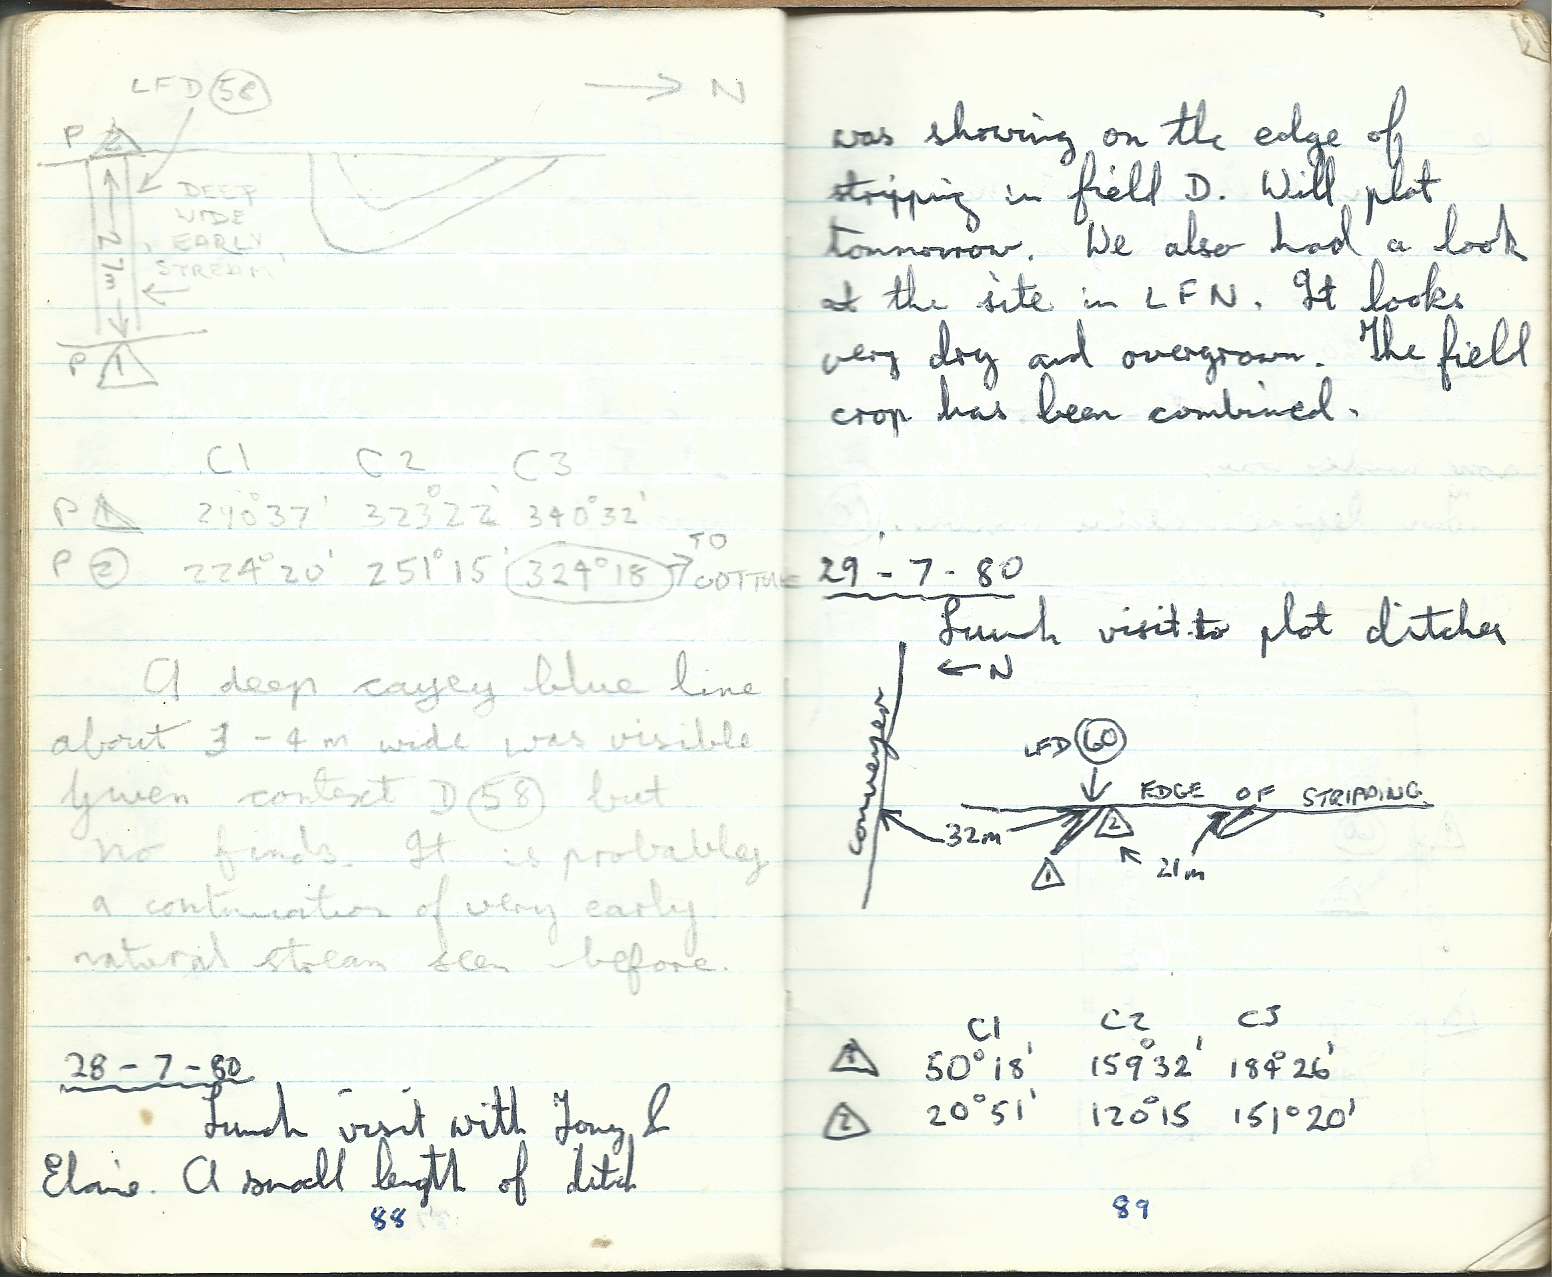 LFD 58
→ N
P 2
DEEP
WIDE
EARLY
STREAM
27m
P 1
C1 C2 C3
P 1 290°37' 323°22' 340°32'
P 2 224°20' 251°15' 324°18' → TO
COTTAGE
A deep cayey blue line
about 3 - 4m wide was visible
Given context D 58 but
no finds. It is probabley
a continuation of very early
natural stream seen before.
28 - 7 - 80
Lunch visit with Tony &
Elaine. A small length of ditch
88
was showing on the edge of
stripping in field D. Will plot
tommorrow. We also had a look
at the site in LFN. It looks
very dry and overgrown. The field
crop has been combined.
29 - 7 - 80
Lunch visit to plot ditches
← N
Conveyer
LFD 60
EDGE OF STRIPPING
32m
2
1
21m
C1 C2 C3
1 50°18' 159°32' 184°26'
2 20°51' 120°15 151°20'
89